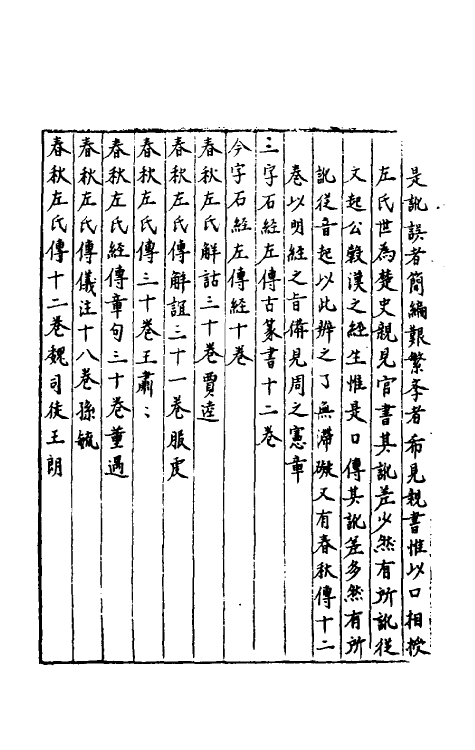 是訛誤者簡編艱繁孝者希見親書惟以口相授
左氏世為楚史親見官書其訛差少然有所訛從
文起公穀漢之經生惟是口傳其訛差多然有所
訛從音起以此辨之了無滯礙又有春秋傳十二
卷以明經之旨備見周之憲章
三字石經左傳古篆書十二卷
今字石經左傳經十卷
春秋左氏解詁三十卷賈逵
春秋左氏傳解誼三十一卷服虔
春秋左氏傳三十卷王肅〻
春秋左氏經傳章句三十卷董遇
春秋左氏傳儀注十八卷孫毓
春秋左氏傳十二卷魏司徒王朗